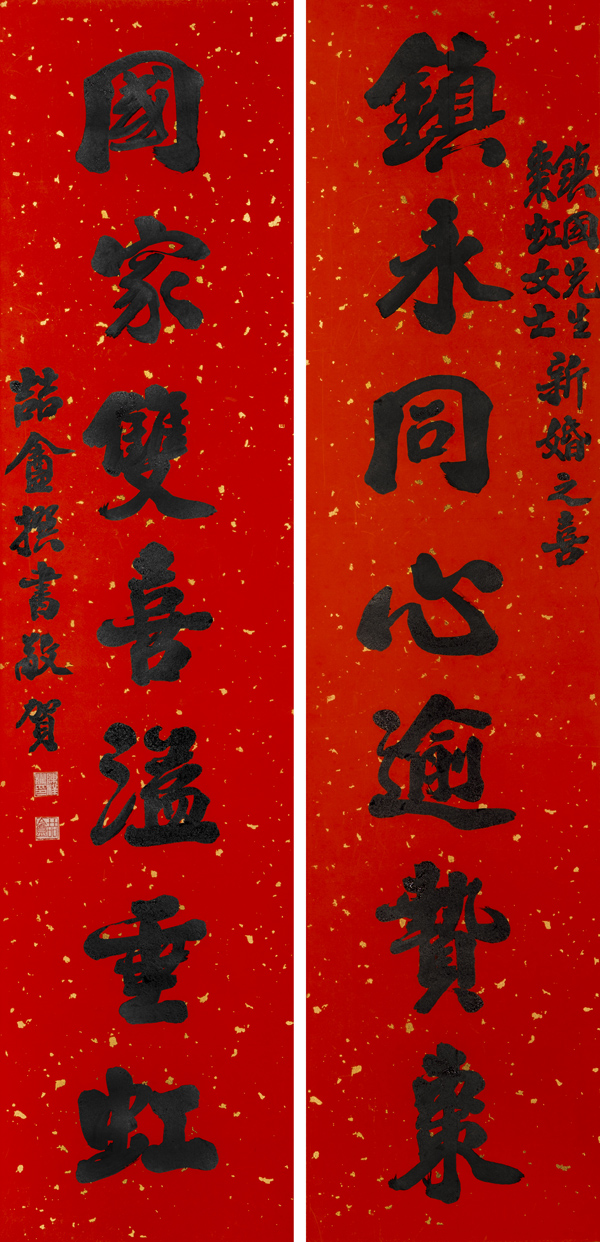 鎮國先生
棗虹女士
新婚之喜
鎮永同心逾贄棗
國家雙喜溢垂虹
喆盦撰書敬賀